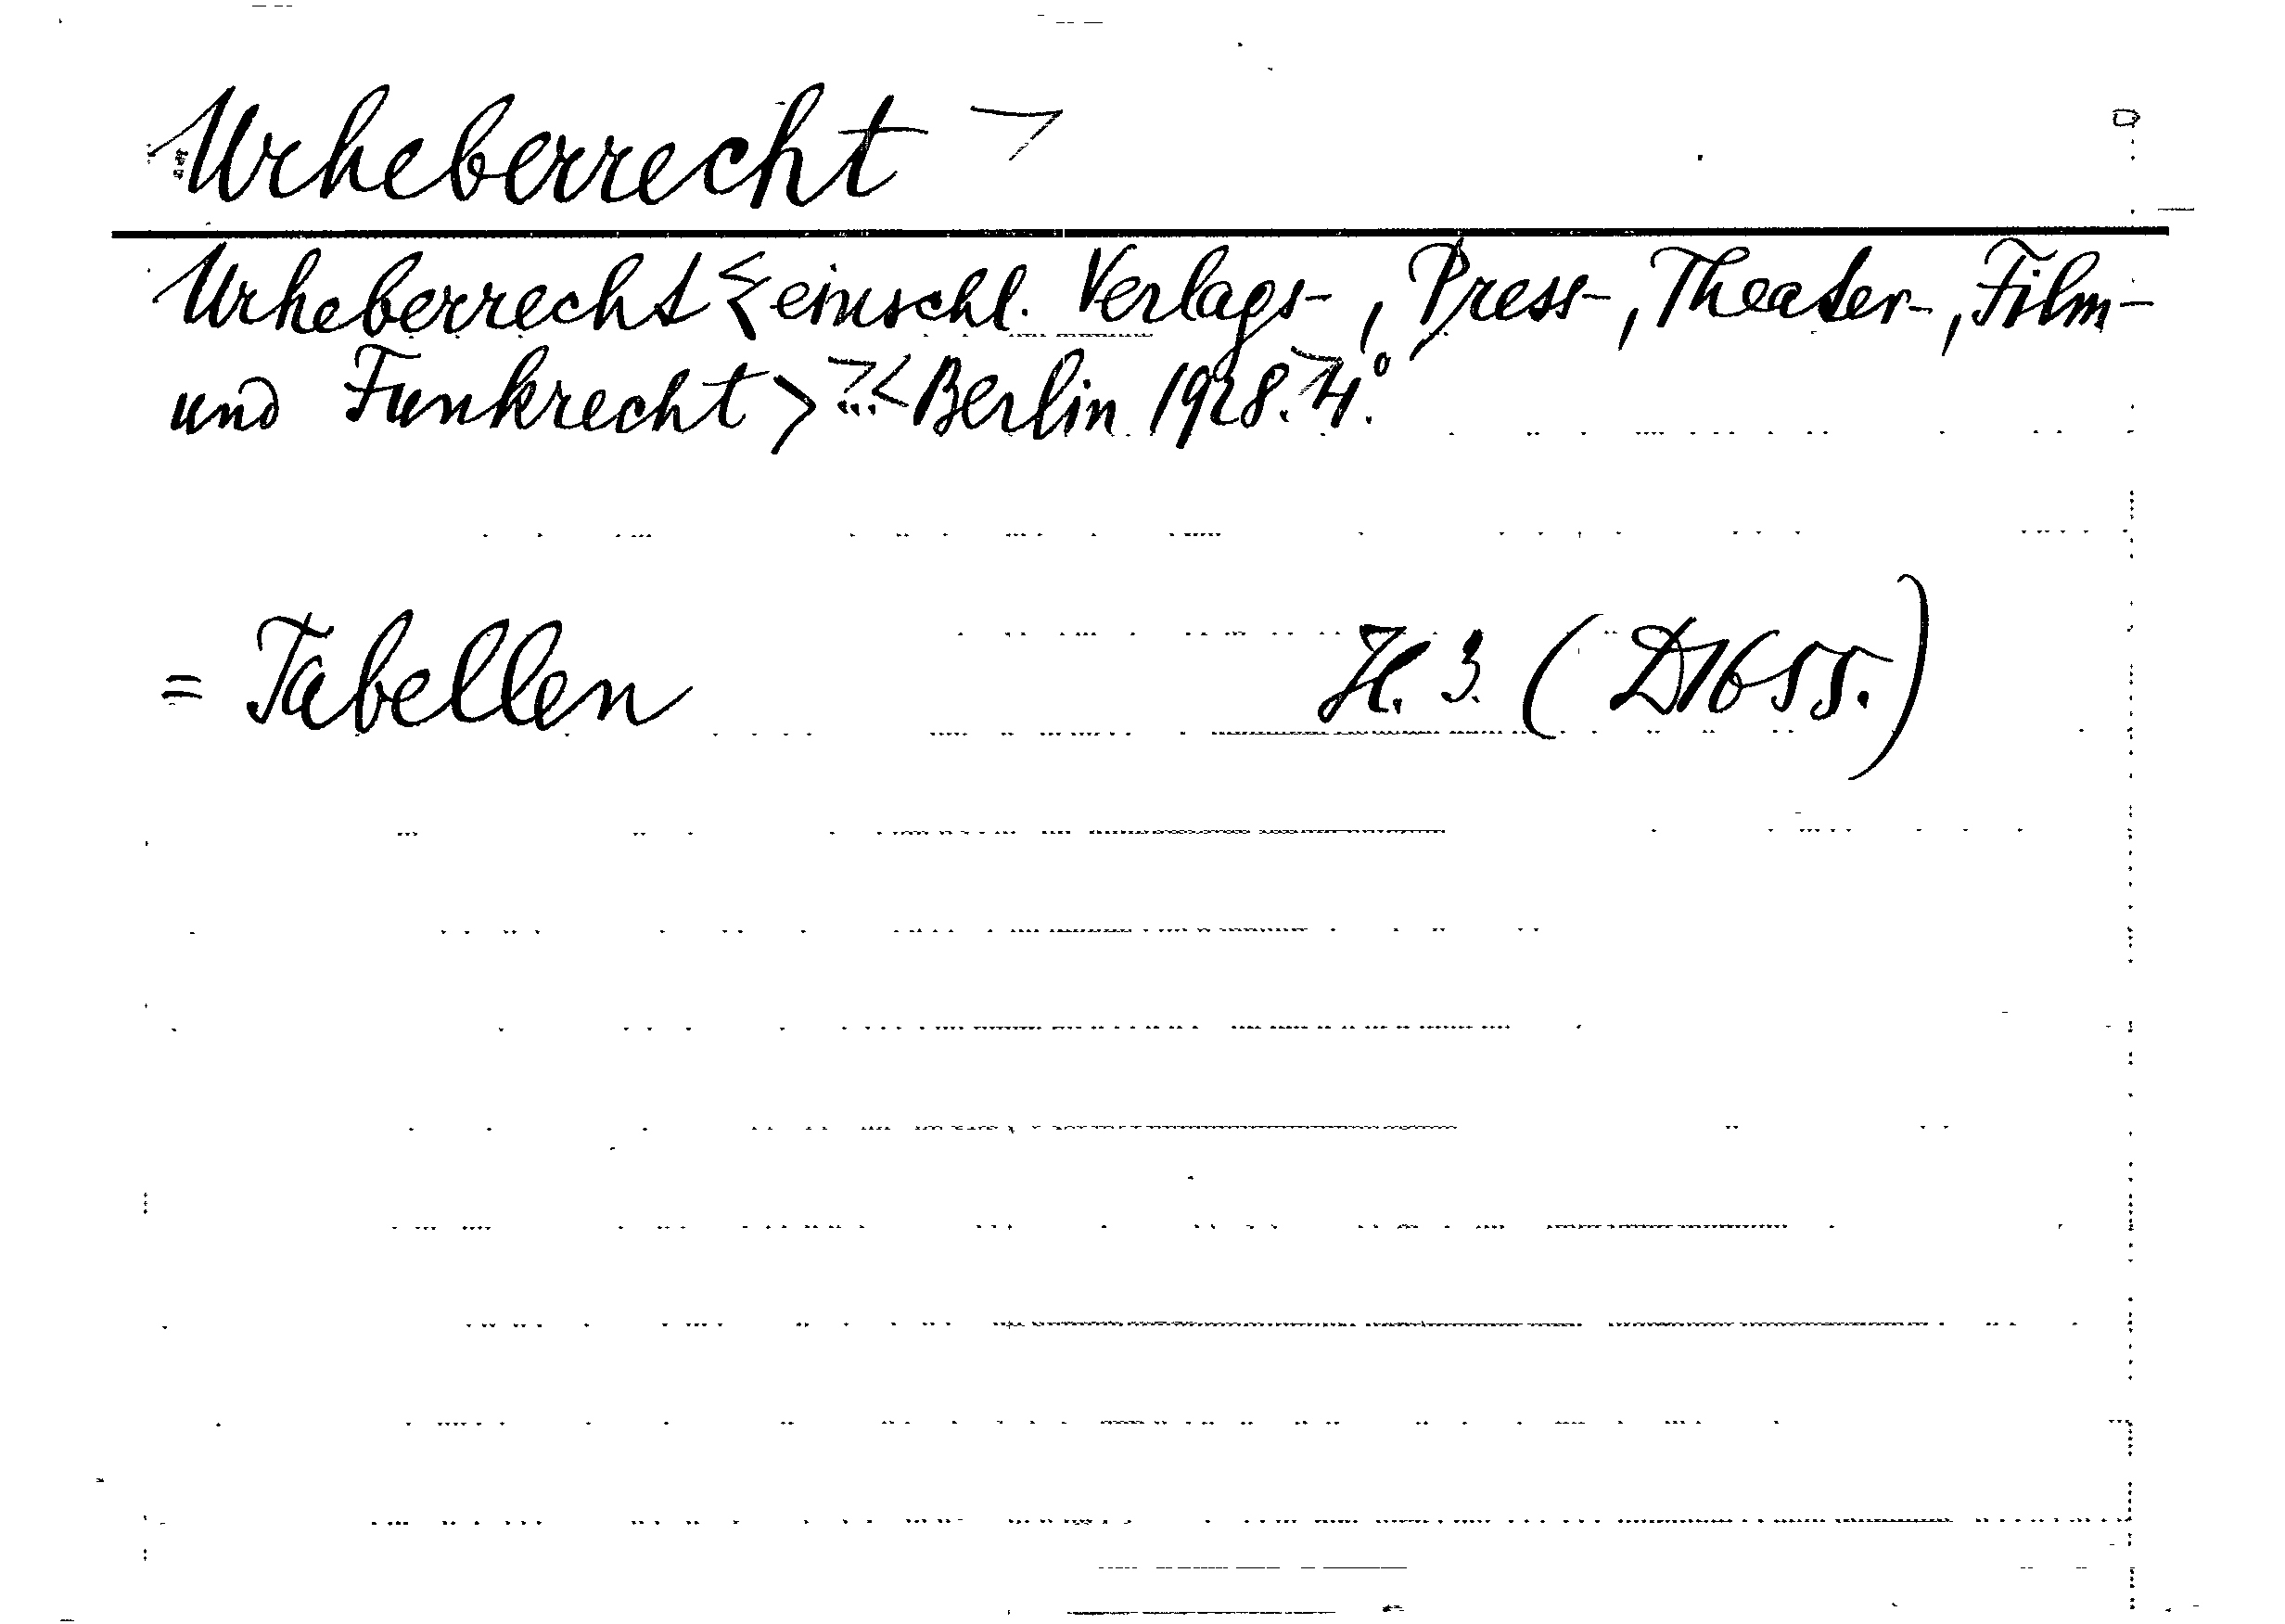 Urheberrecht >
Urheberrecht < einschl. Verlags-, Press-, Theater-, Film-
und Funkrecht > ... < Berlin 1928. > 4°.
= Tabellen H. 3. (D1655.)